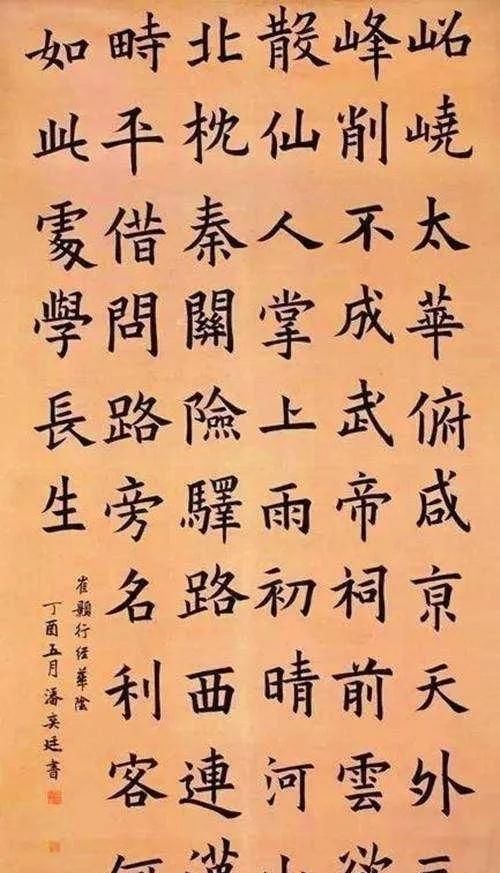 岧嶢太華俯咸京天外三
峰削不成武帝祠前雲欲
散仙人掌上雨初晴河山
北枕秦關險驛路西連漢
畤平借問路旁名利客何
如此處學長生
崔顥行經華陰
丁酉五月潘奕廷書